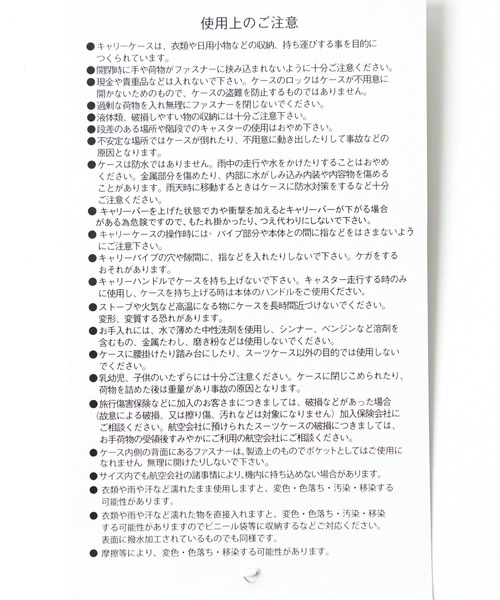 使用上のご注意
● キャリーケースは、衣類や日用小物などの収納、持ち運びする事を目的に
つくられています。
● 開閉時に手や荷物がファスナーに挟み込まれないように十分ご注意ください。
● 現金や貴重品などは入れないで下さい。ケースのロックはケースが不用意に
開かないためのもので、ケースの盗難を防止するものではありません。
● 過剰な荷物を入れ無理にファスナーを閉じないでください。
● 液体類、破損しやすい物の収納には十分ご注意下さい。
● 段差のある場所や階段でのキャスターの使用はおやめ下さい。
● 不安定な場所ではケースが倒れたり、不用意に動き出したりして事故などの
原因となります。
● ケースは防水ではありません。雨中の走行や水をかけたりすることはおやめ
ください。金属部分を傷めたり、内部に水がしみ込み内装や内容物を傷める
ことがあります。雨天時に移動するときはケースに防水対策をするなど十分
ご注意ください。
● キャリーバーを上げた状態で力や衝撃を加えるとキャリーバーが下がる場合
がある為危険ですので、もたれ掛かったり、つえ代わりにしないで下さい。
● キャリーケースの操作時には、パイプ部分や本体との間に指などをはさまないよう
にご注意下さい。
● キャリーパイプの穴や隙間に、指などを入れたりしないで下さい。ケガをする
おそれがあります。
● キャリーハンドルでケースを持ち上げない下さい。キャスター走行する時のみ
に使用し、ケースを持ち上げる時は本体のハンドルをご使用ください。
● ストーブや火気など高温になる物にケースを長時間近づけないでください。
変形、変質する恐れがあります。
● お手入れには、水で薄めた中性洗剤を使用し、シンナー、ベンジンなど溶剤を
含むもの、金属たわし、磨き粉などは使用しないでください。
● ケースに腰掛けたり踏み台にしたり、スーツケース以外の目的では使用しない
でください。
● 乳幼児、子供のいたずらには十分ご注意ください。ケースに閉じこめられたり、
荷物を詰めた後は重量があり事故の原因となります。
● 旅行傷害保険などに加入のお客さまにつきましては、破損などがあった場合
（故意による破損、又は擦り傷、汚れなどは対象になりません）加入保険会社に
ご相談ください。航空会社に預けられたスーツケースの破損につきましては、
お手荷物の受領後すみやかにご利用の航空会社にご相談ください。
● ケース内側の背面にあるファスナーは、製造上のものでポケットとしてはご使用に
なれません 無理に開けたりしないで下さい。
● サイズ内でも航空会社の諸事情により、機内に持ち込めない場合があります。
● 衣類や雨や汗など濡れたまま使用しますと、変色・色落ち・汚染・移染する
可能性があります。
● 衣類や雨や汗など濡れた物を直接入れますと、変色・色落ち・汚染・移染
する可能性がありますのでビニール袋等に収納するなどご対応ください。
表面に撥水加工されているものでも同様です。
● 摩擦等により、変色・色落ち・移染する可能性があります。